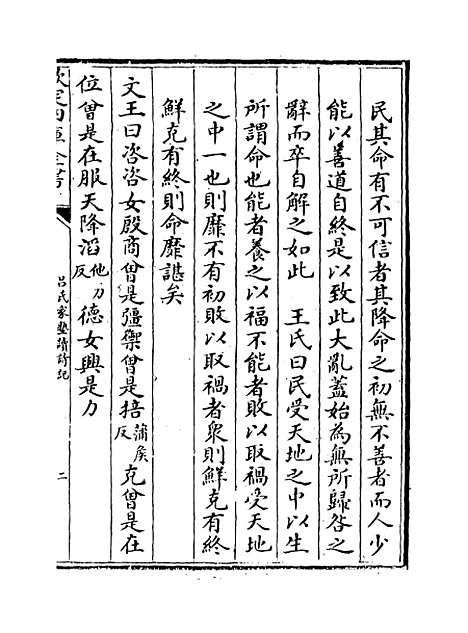 民其命有不可信者其降命之初無不善者而人少
能以善道自終是以致此大亂蓋始為無所歸咎之
辭而卒自解之如此　王氏曰民受天地之中以生
所謂命也能者養之以福不能者敗以取禍受天地
之中一也則靡不有初敗以取禍者衆則鮮克有終
鮮克有終則命靡諶矣
文王曰咨咨女殷商曾是彊禦曾是掊蒲侯反克曾是在
位曾是在服天降滔他刀反德女興是力
欽定四庫全書
呂氏家塾讀詩記
二